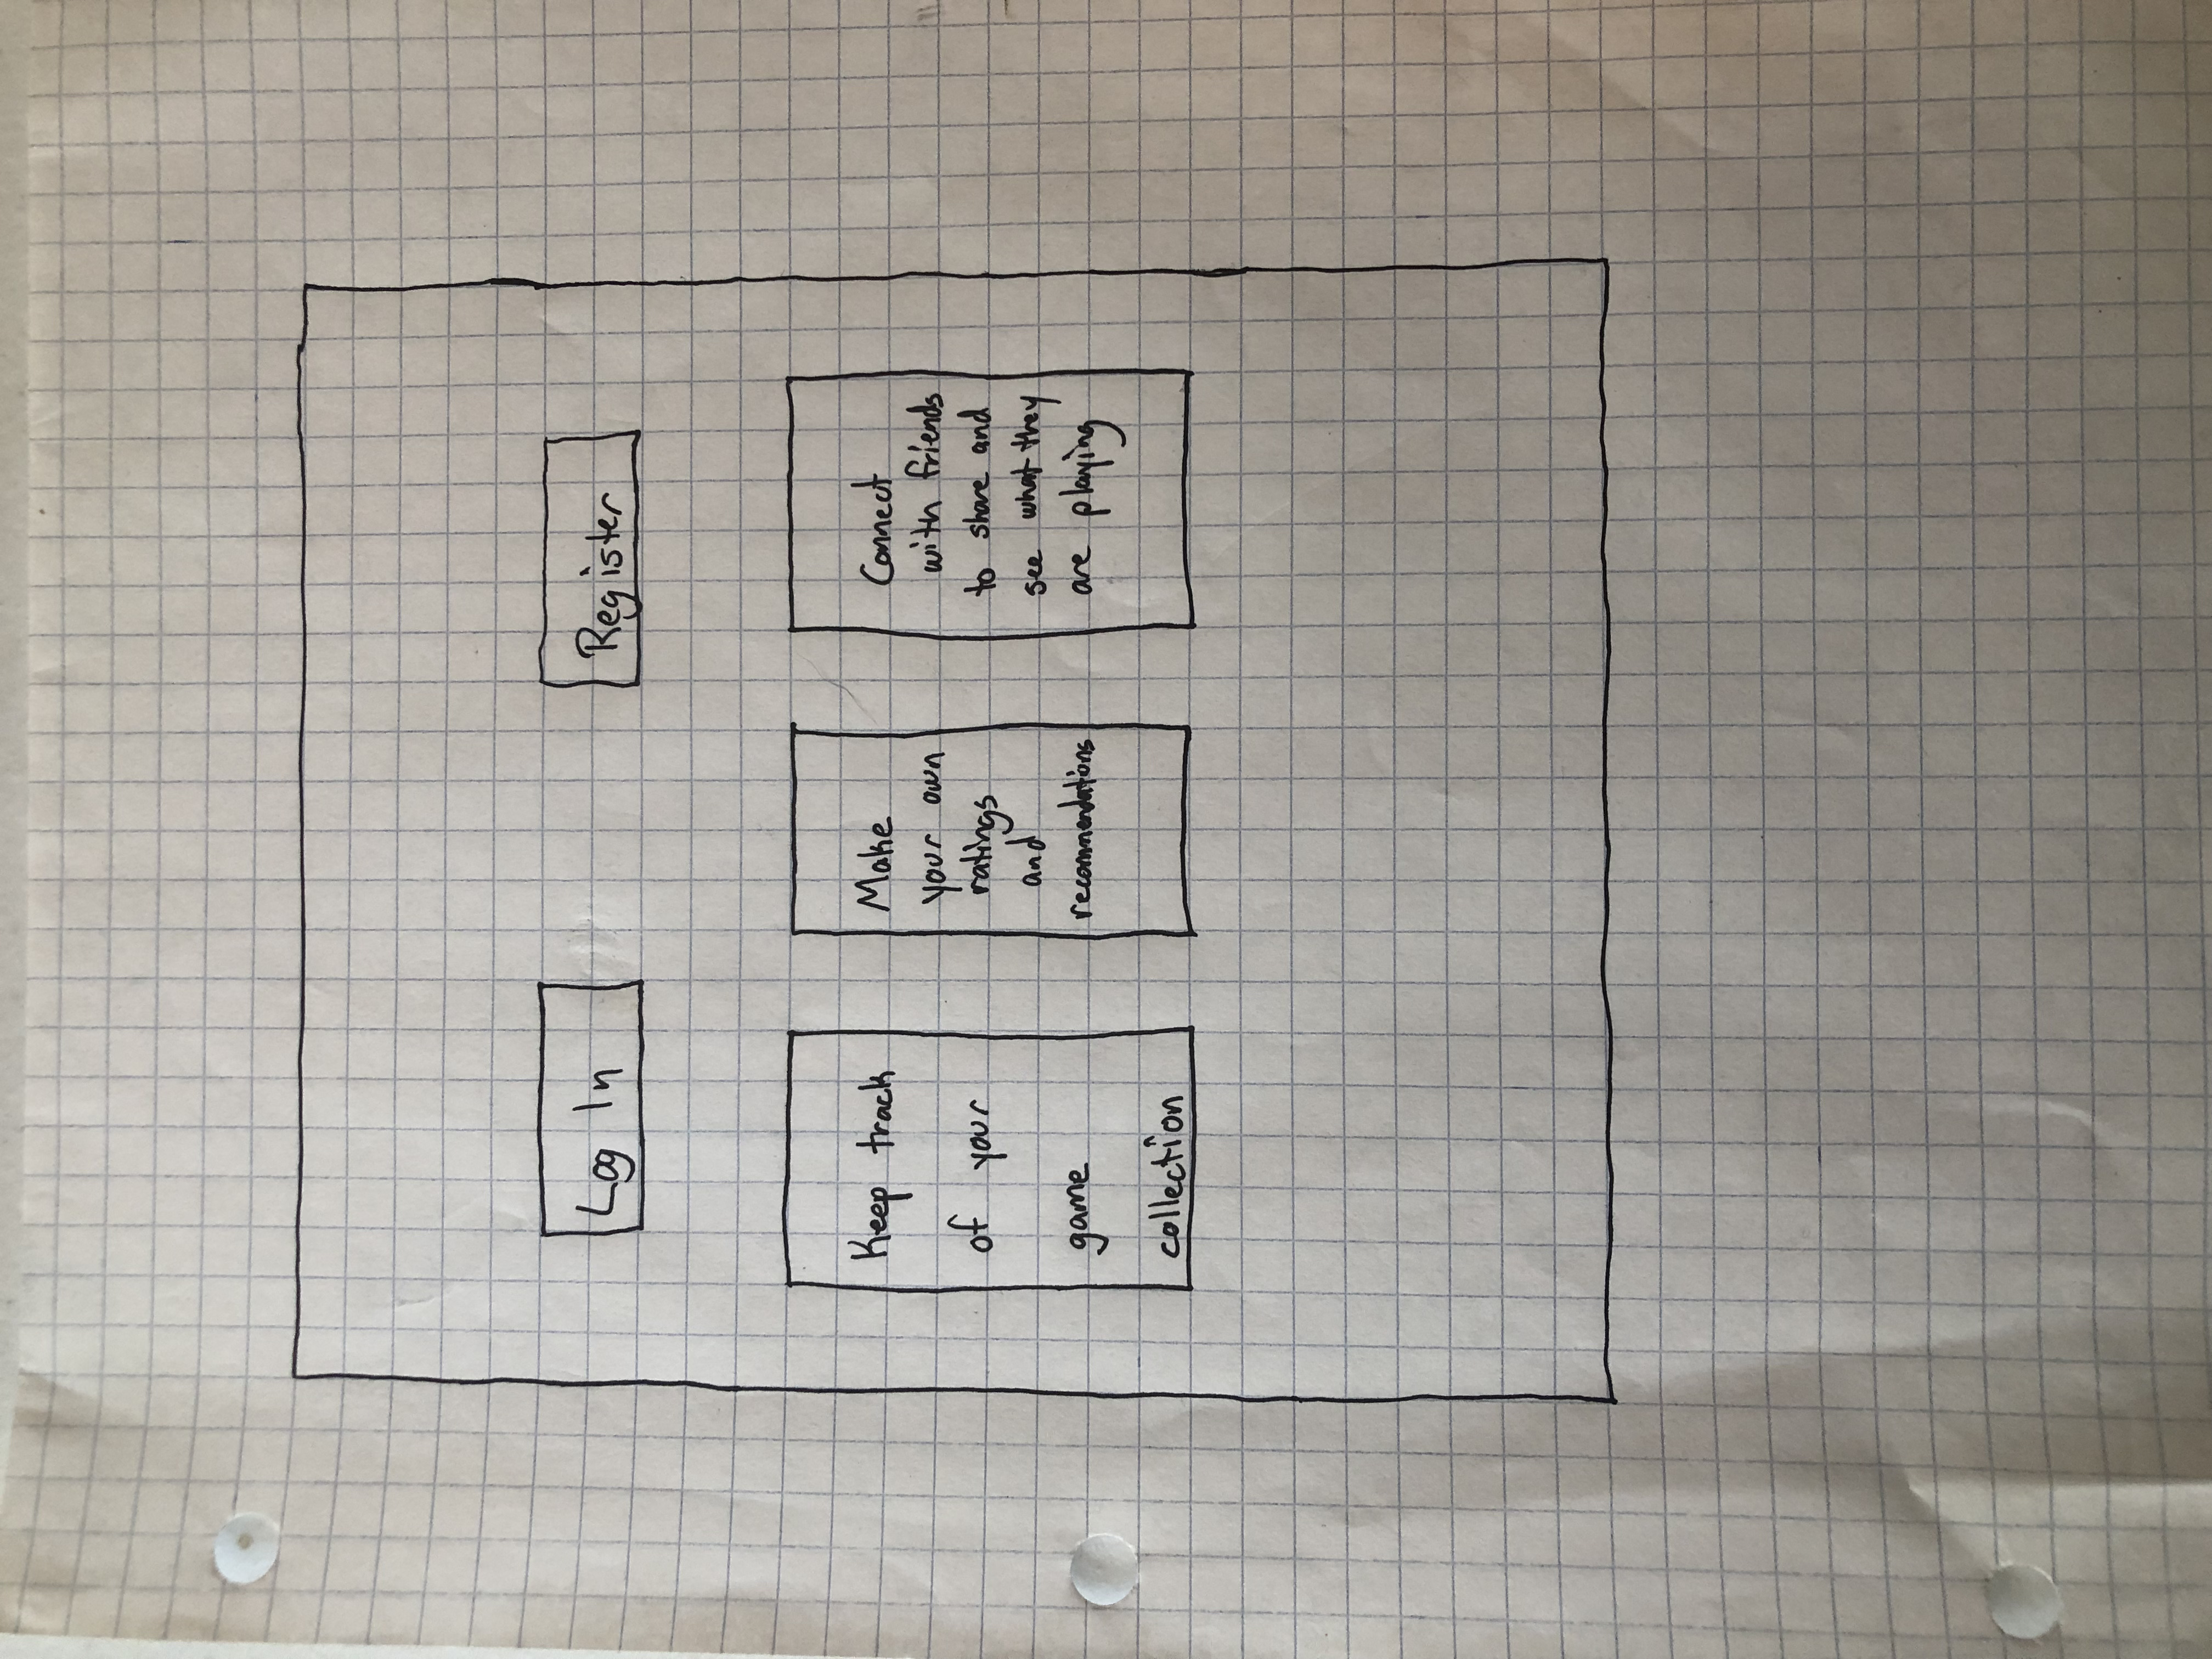 Log In
Register
Keep track
of your
game
collection
Make
your own
ratings
and
recommendations
Connect
with friends
to share and
see what they
are playing